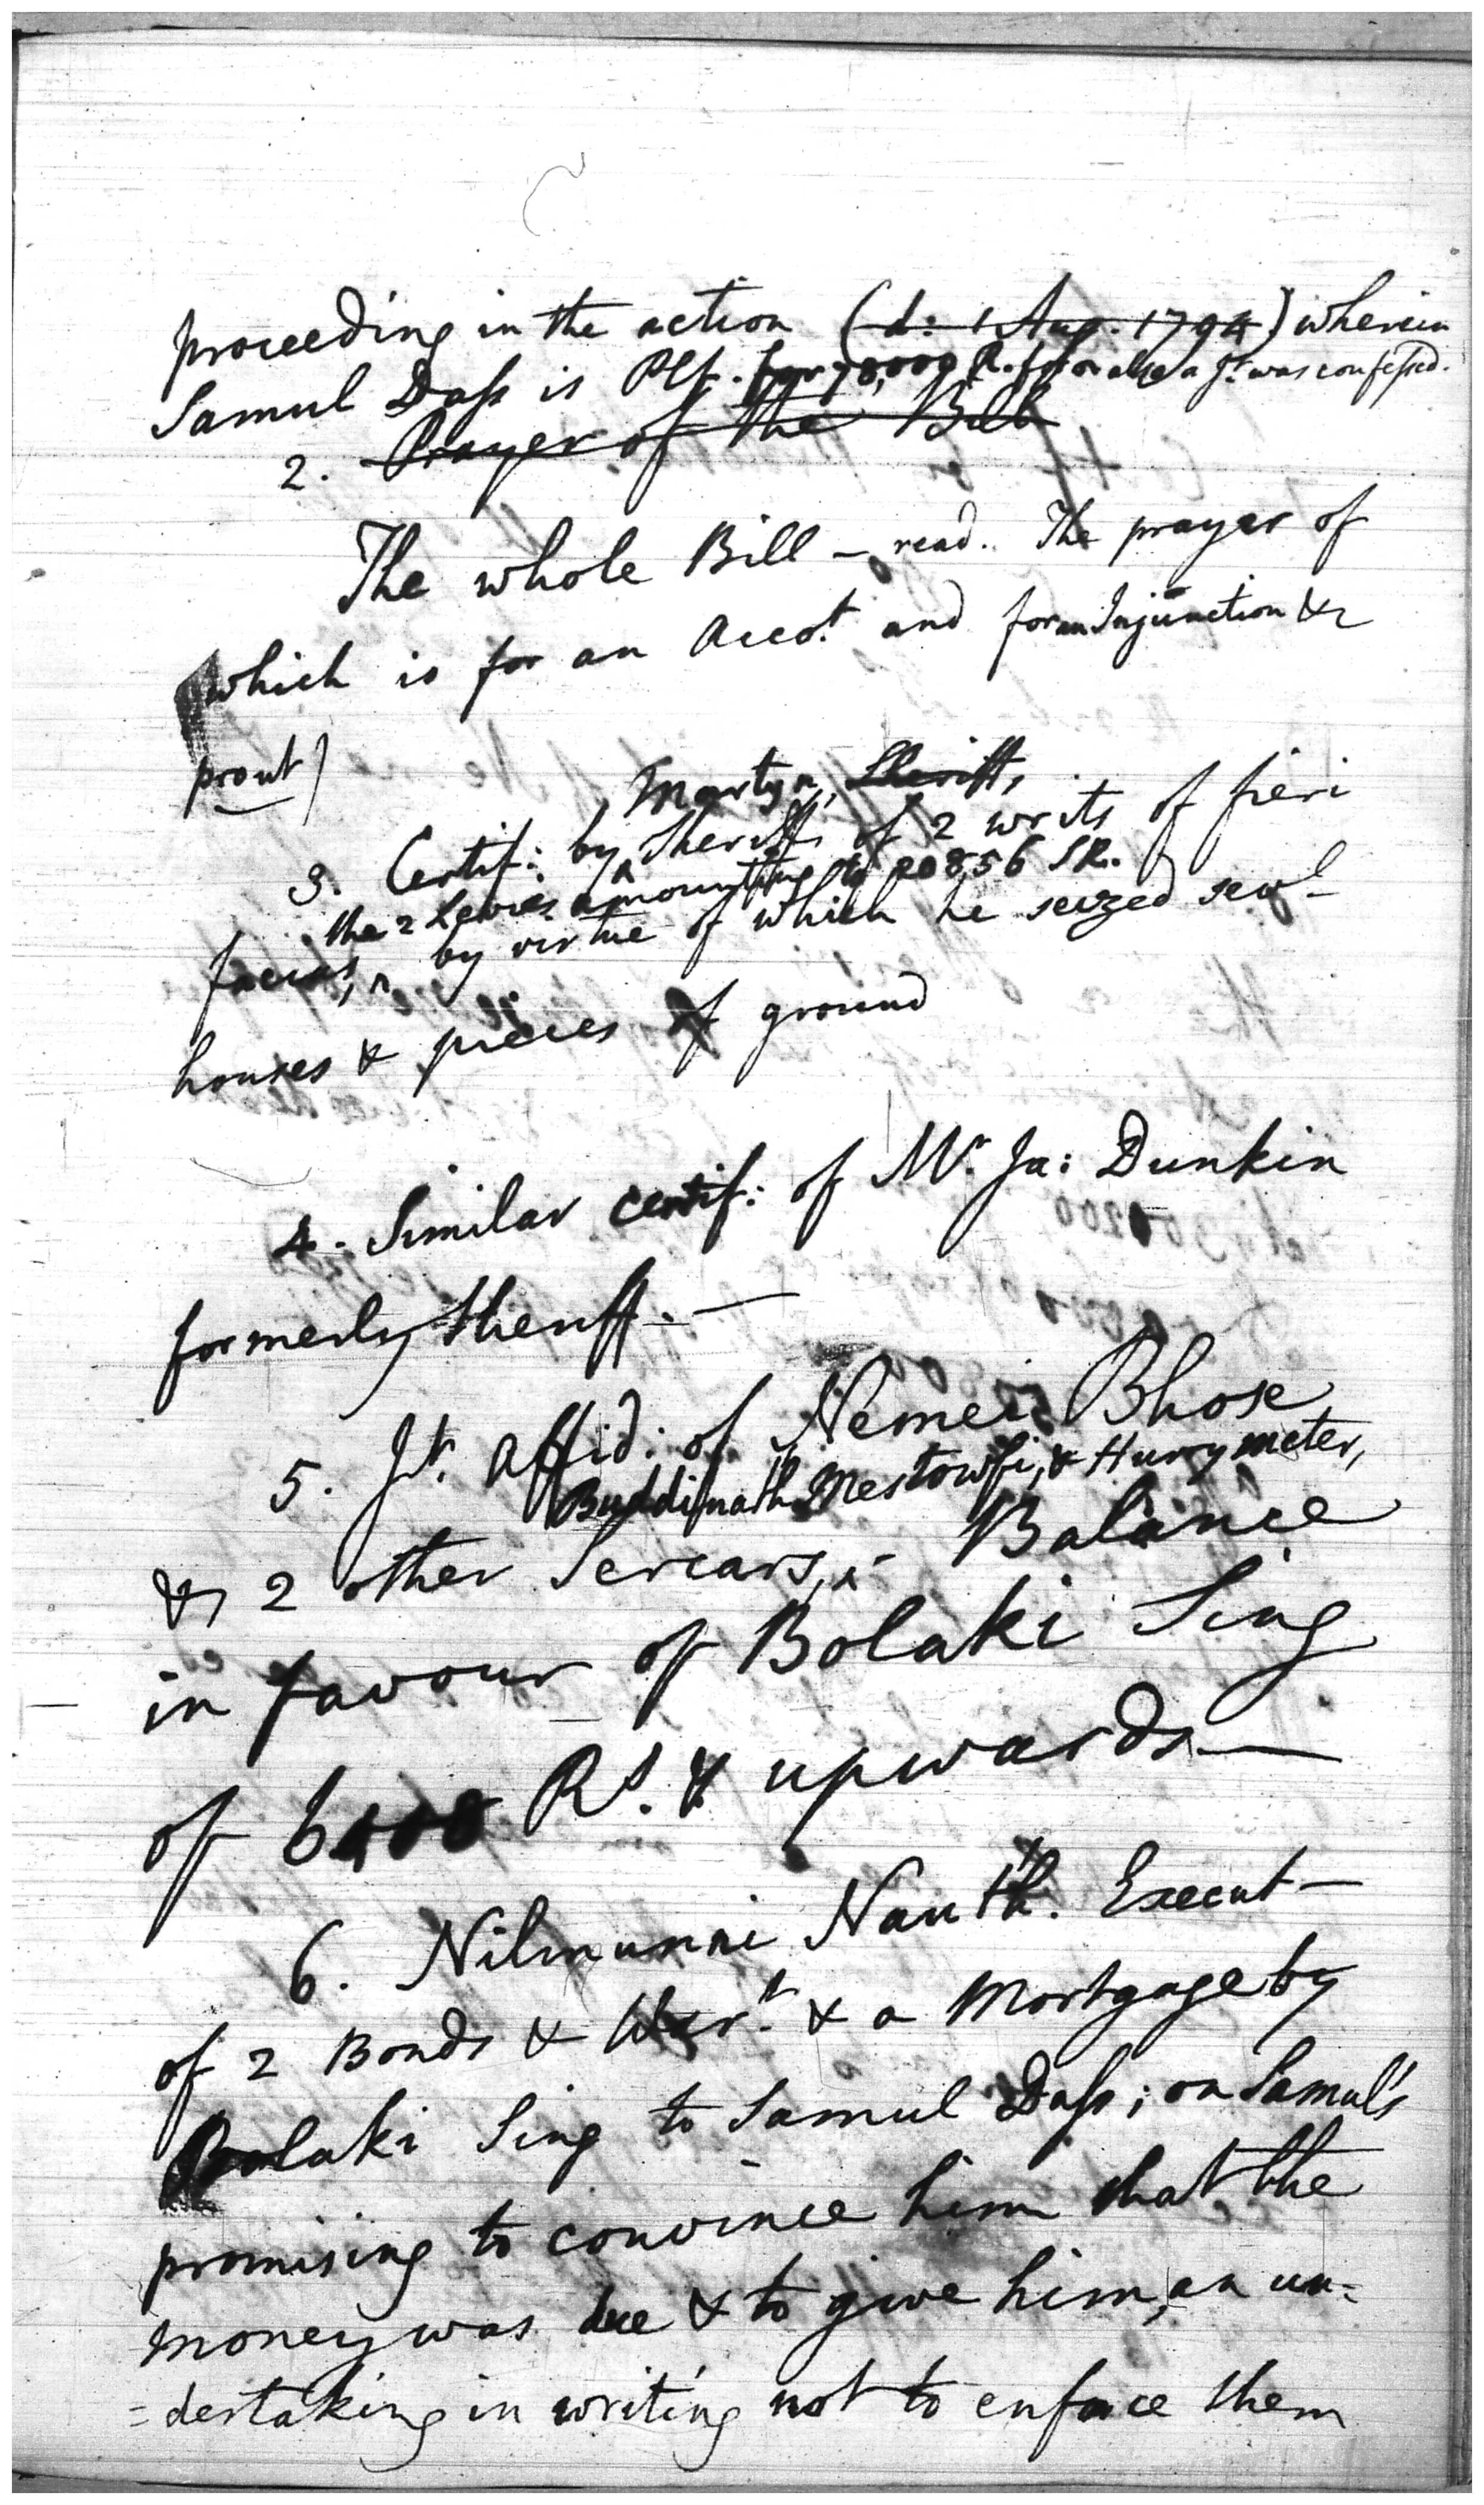 proceeding in the action (d: 1 Aug. 1794) wherein
Samul Dass is Plf. for 78,000 R. for a Jt. was confessed.
2. Prayer of the Bill
The whole Bill – read. The prayer of
which is for an Accot. and for an Injunction &c
prout)
Martyn, Sheriff,
3. Certif: by Sheriff of 2 writs of fieri
the 2 Levies amounting to 20856 SR.
facias, ^ by virtue of which he seized sevl
houses & pieces of ground
4. Similar certif: of Mr. Ja: Dunkin
formerly Sheriff. —
5. Jt. Affid: of Nemei Bhose
Buddinath Mestowfi, & Hurymeter,
& 2 other Sercars, ^ – Balance
in favour of Bolaki Sing
of Rs. & upwards —
6. Nilmunni Nauth. Execut –
of 2 Bonds & Warrt. & a Mortgage by
Bolaki Sing to Samul Dass; on Samul's
promising to convince him that the
money was due & to give him, an un=
=dertaking in writing not to enforce them